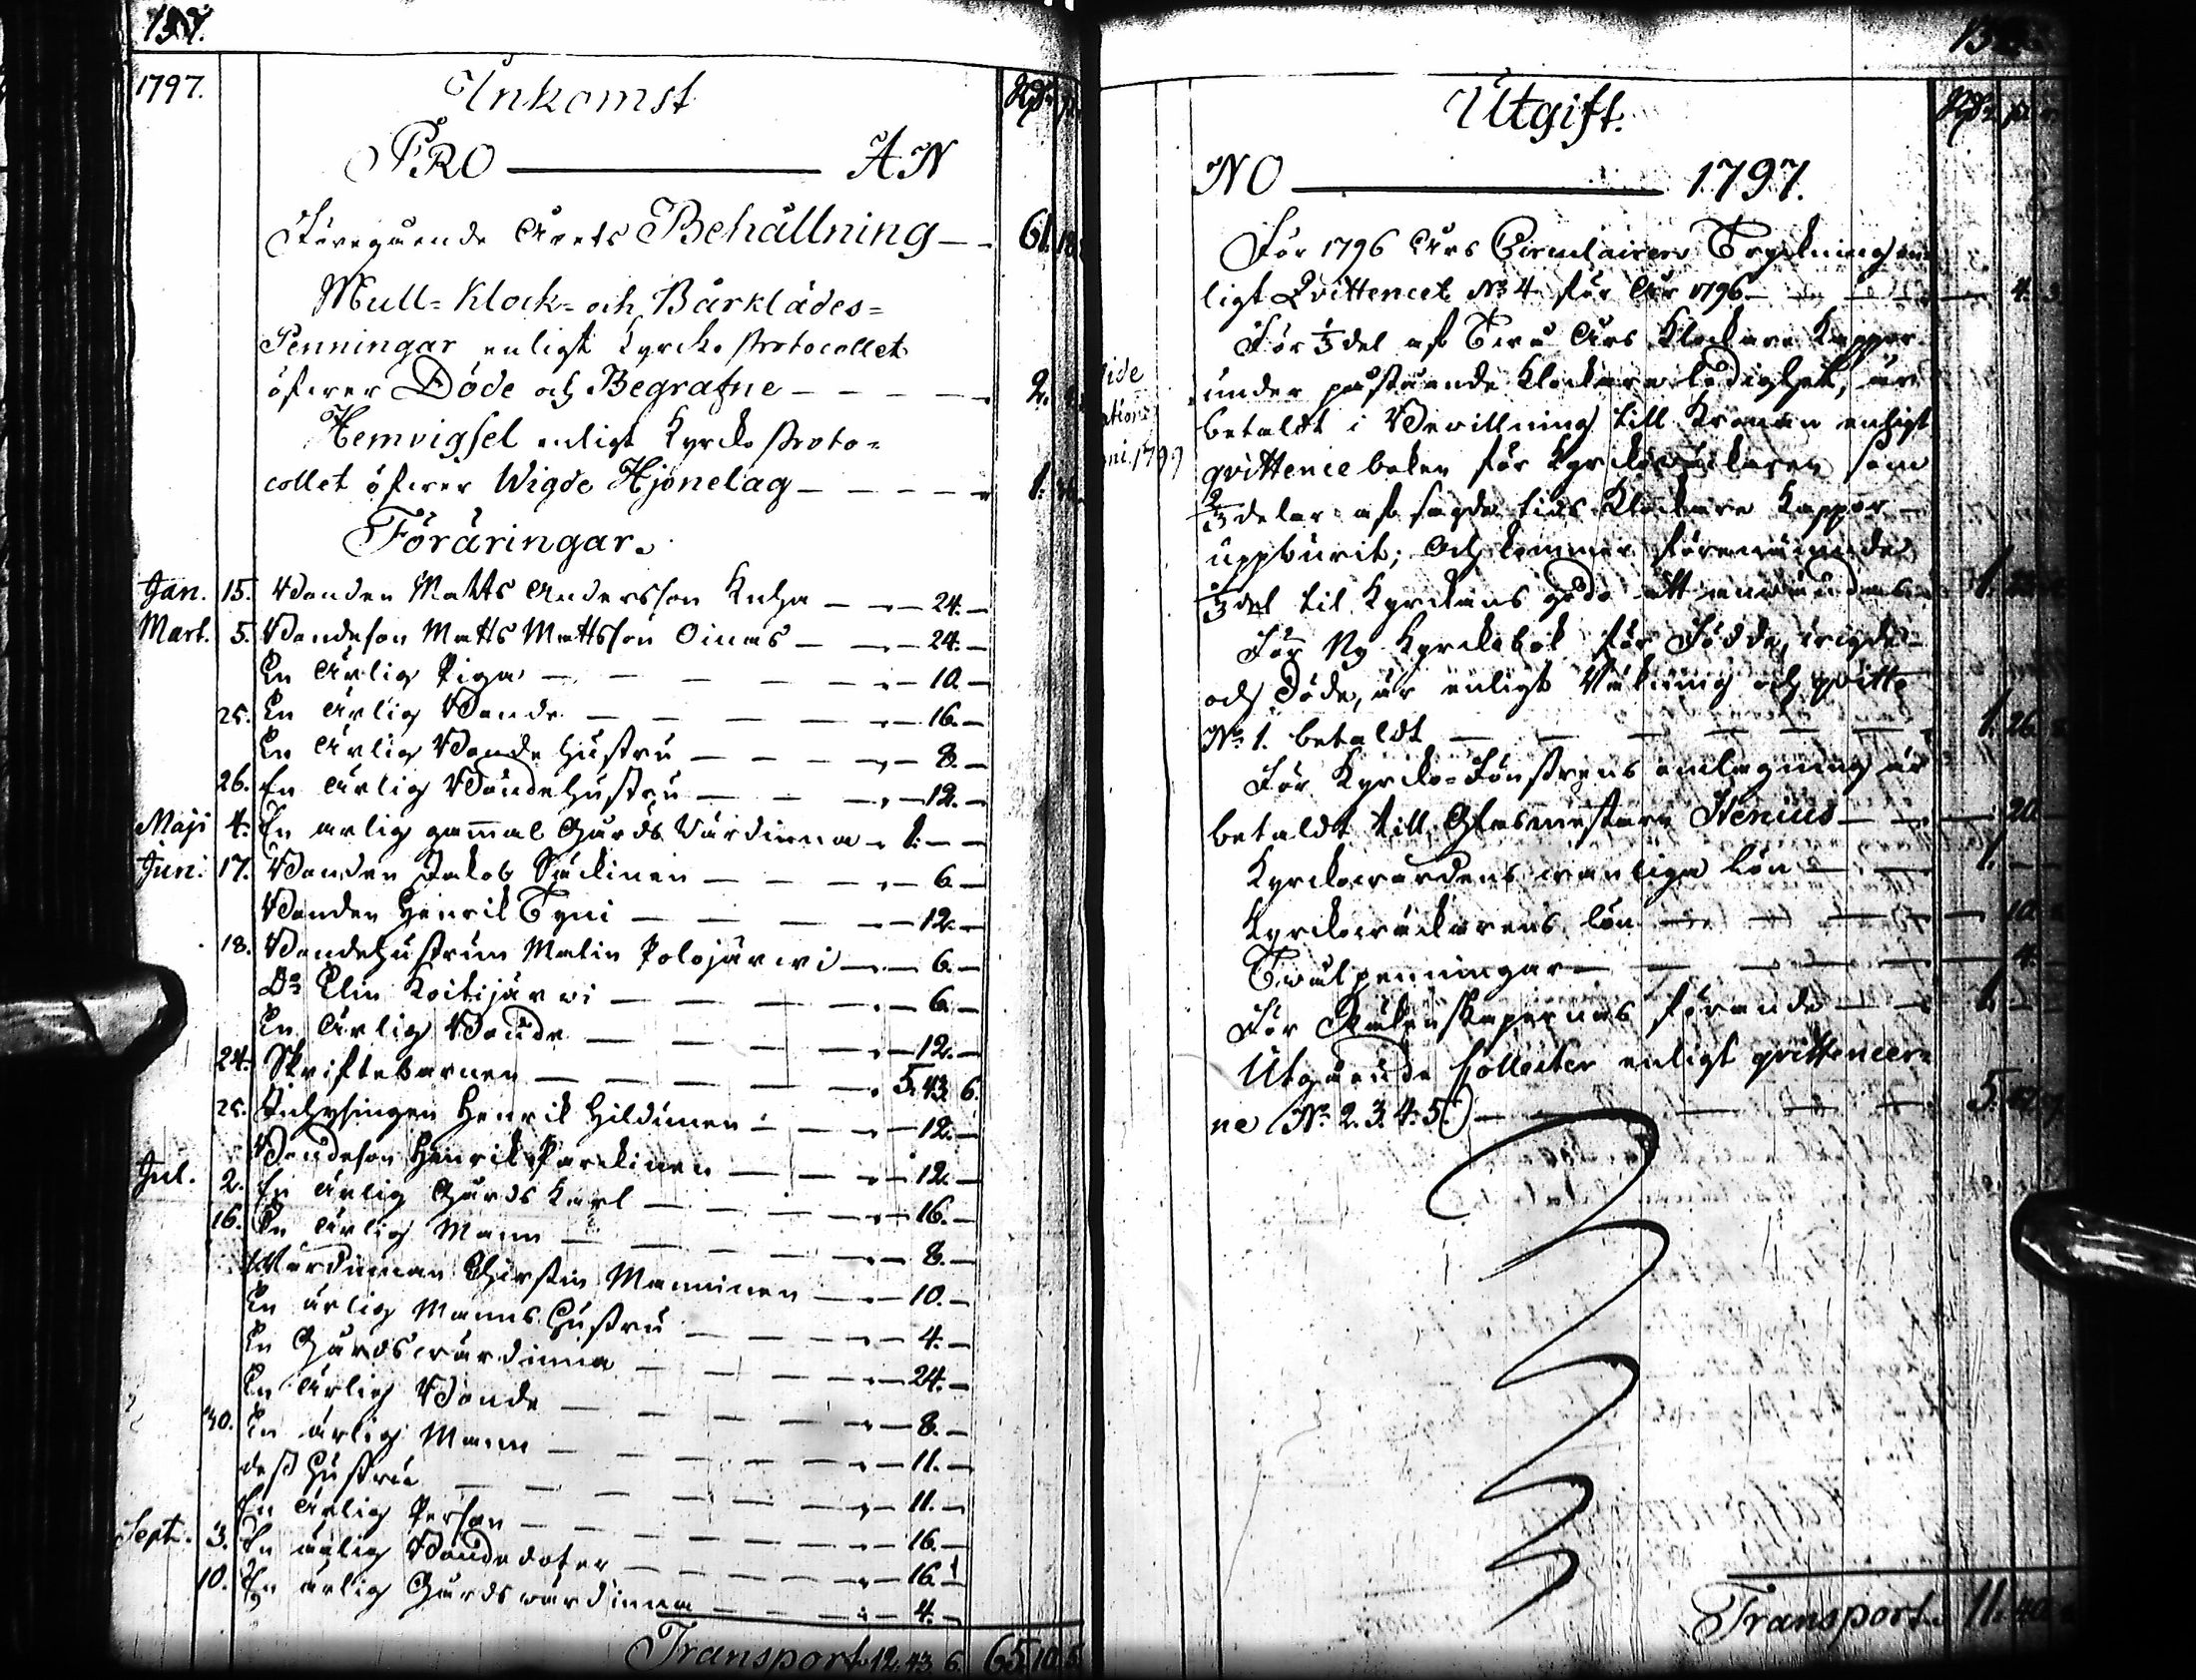 157.
1797.
Inkomst
Rdr
PRO — AN
Föregående Årets Behållning — 61. 18
Mull- Klock- och Bårklädes-
Penningar enligt Kyrcko Protocollet
öfwer Döde och Begrafne — 2.
Hemvigsel enligt Kyrcko Proto-
collet öfwer Wigde Hjonelag — 1.
Föräringar.
Jan. 15. Bonden Matts Andersson — 24. —
Mart. 5. Bondeson Matts Mattsson Oinas — 24. —
En Ärlig Piga — 10. —
25. En Ärlig Bonde — 16. —
En Ärlig Bonde hustru — 8. —
26. En Ärlig Bondehustru — 12. —
Maji 4. En ärlig gammal Gårds Värdinna — 1. — —
Jun: 17. Bonden Jakob Säckinen — 6. —
Bonden Henrik Tyni — 12. —
18. Bondehustrun Malin Polojärwi — 6. —
Do Elin Koitijärwi — 6. —
En Ärlig Bonde — 12. —
24. Skriftebarnen — 5. 43. 6.
25. Inhysingen Henrik Hildinen — 12. —
Bondeson Henrik Parckinen — 12. —
Jul. 2. En ärlig Gårds Karl — 16. —
16. En Ärlig Mann — 8. —
Wärdinnan Chirstin Manninen — 10. —
En ärlig Manns Hustru — 4. —
En Gårdswärdinna — 24. —
En Ärlig Bonde — 8. —
30. En ärlig Mann — 11. —
dess Hustru — 11. —
En Ärlig Person — 16. —
Sept. 3. En ärlig Bondedoter — 16. —
10. En ärlig Gårdswärdinna — 4. —
Transport 12. 43. 6. 65. 10.
Utgift.
Rdr
NO — 1797.
För 1796 Års Circulairers Tryckning en-
ligt Qvittencet No 4 för År 1796 — 4.
För 1/3 del af Twå Års Klockare Kappor
under påstående Klockare ledighet, är
betaldt i Bewillning till Kronan enligt
qvittence boken för Kyrckowäckaren som
2/3 delar af sagde tids Klockare Kappor
uppburit; Och kommer förenämnde
1/3 del til Kyrckans godo att användas — 1.
För Ny Kyrckobok för Födde, wigde
och Döde, är enligt Räkning och qvitto
No 1. betaldt — 1. 26.
För Kyrcko-Fönstrens omlagning är
betaldt till Glasmästare Stenius — 20
Kyrckowärdens wanliga Lön — 1. —
Kyrckowäckarens lön — 10.
Twålpenningar — 4.
För Räkenskapernas förande — 1. —
Utgående Collecter enligt qvittencer-
ne (No 2. 3. 4. 5.) — 5.
ni. 1799
Transport. 11. 40